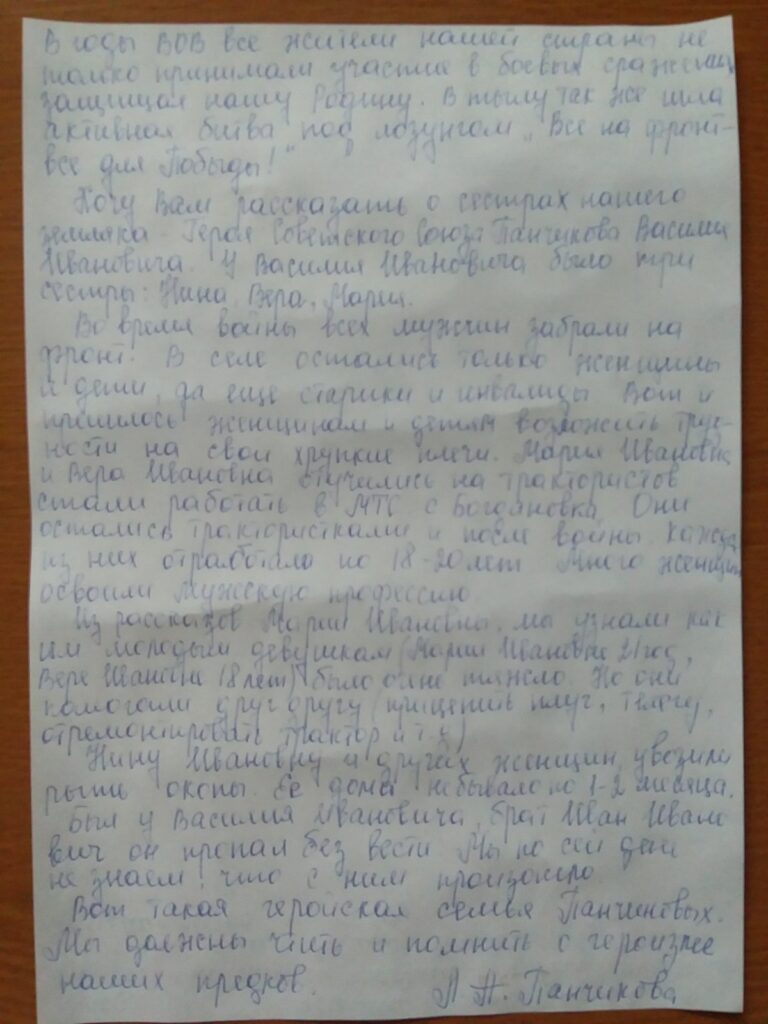 В годы ВОВ все жители нашей страны не
только принимали участие в боевых сражениях
защищая нашу Родину. В тылу так же шла
активная битва под лозунгом „Все на фронт-
все для Победы!"
Хочу Вам рассказать о сестрах нашего
земляка - Героя Советского Союза Панчикова Василия
Ивановича. У Василия Ивановича было три
сестры: Нина, Вера, Мария.
Во время войны всех мужчин забрали на
фронт. В селе остались только женщины
и дети, да еще старики и инвалиды. Вот и
пришлось женщинам и детям возложить труд-
ности на свои хрупкие плечи. Мария Ивановна
и Вера Ивановна обучились на трактористов
стали работать в МТС с Богдановка. Они
остались трактористками и после войны. Каждая
из них отработала по 18-20 лет. Много женщин
освоили мужскую профессию.
Из рассказов Марии Ивановны, мы узнали как
им молодым девушкам (Марии Ивановне 21 год,
Вере Ивановне 18 лет) было очень тяжело. Но они
помогали друг другу (прицепить плуг, телегу,
отремонтировать трактор и т.д)
Нину Ивановну и других женщин увозили
рыть окопы. Ее дома не бывало по 1-2 месяца.
Был у Василия Ивановича, брат Иван Ивано
вич он пропал без вести. Мы по сей день
не знаем, что с ним произошло.
Вот такая геройская семья Панчиковых.
Мы должны чтить и помнить о героизме
наших предков. Панчикова